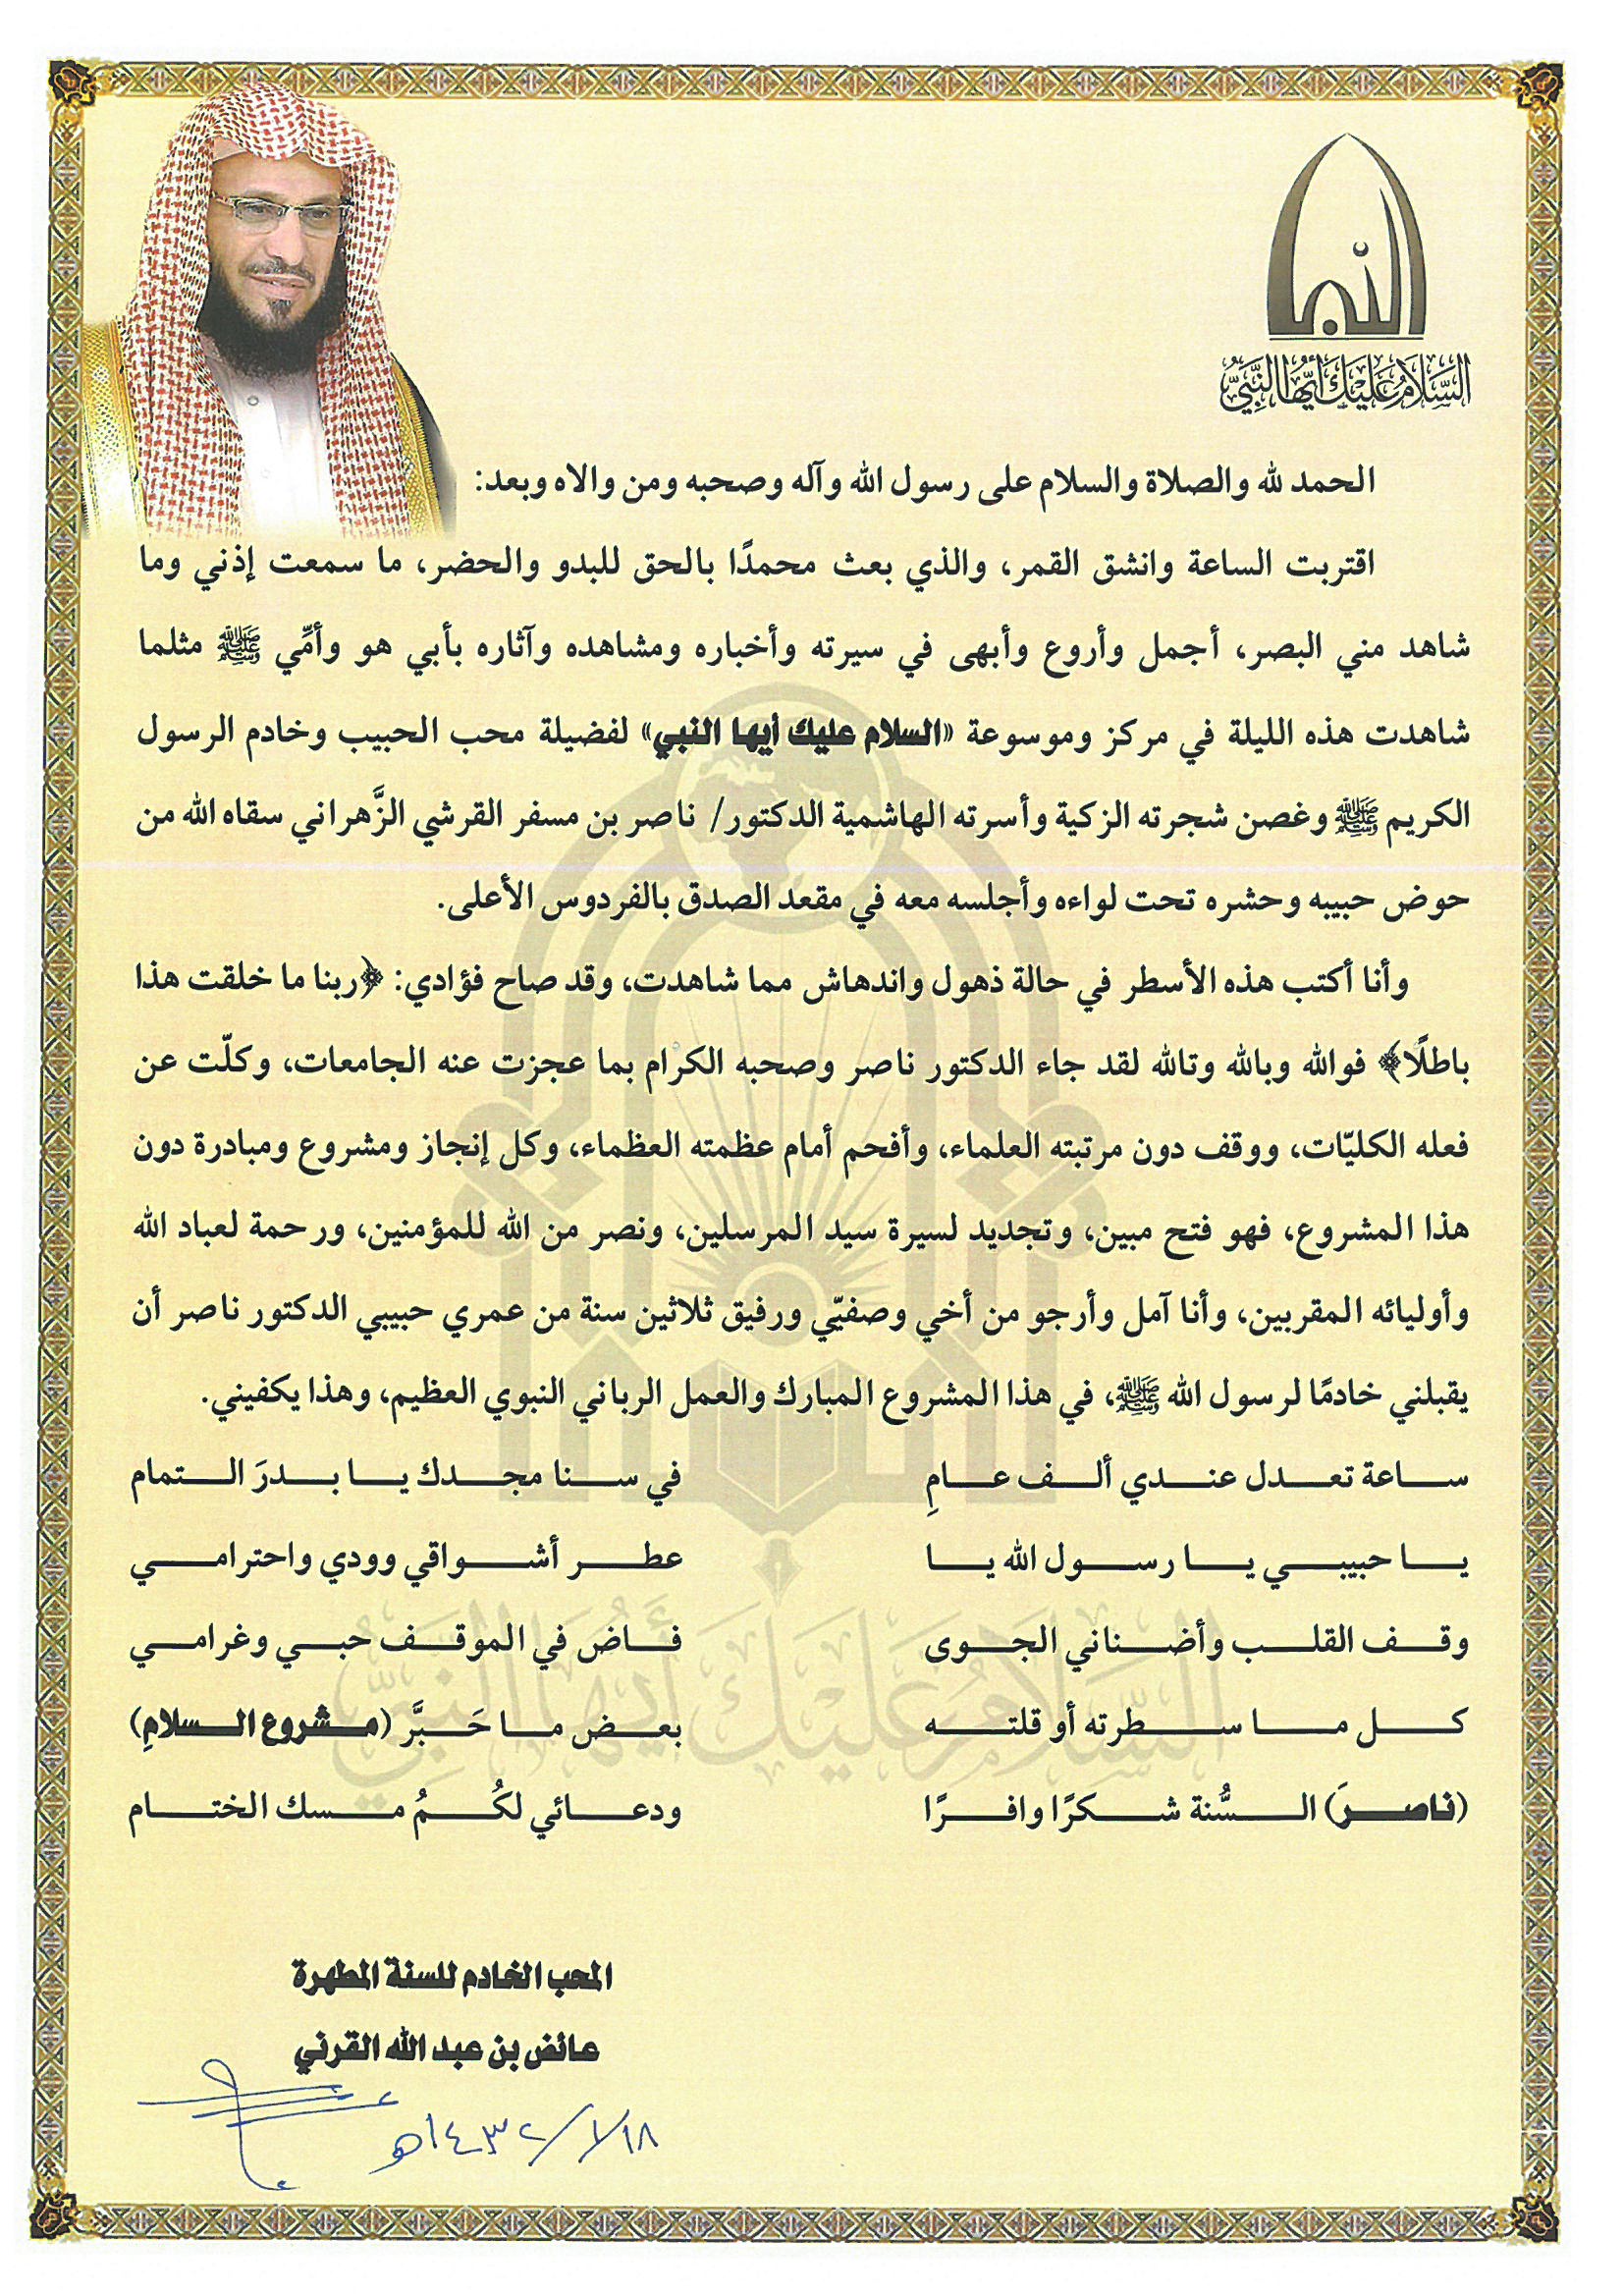 النبأ
السلام عليك أيها النبي
الحمد لله والصلاة والسلام على رسول الله وآله وصحبه ومن والاه وبعد:
اقتربت الساعة وانشق القمر، والذي بعث محمدًا بالحق للبدو والحضر، ما سمعت إذني وما
شاهد مني البصر، أجمل وأروع وأبهى في سيرته وأخباره ومشاهده وآثاره بأبي هو وأمِّي ﷺ مثلما
شاهدت هذه الليلة في مركز وموسوعة «السلام عليك أيها النبي» لفضيلة محب الحبيب وخادم الرسول
الكريم ﷺ وغصن شجرته الزكية وأسرته الهاشمية الدكتور/ ناصر بن مسفر القرشي الزَّهراني سقاه الله من
حوض حبيبه وحشره تحت لواءه وأجلسه معه في مقعد الصدق بالفردوس الأعلى.
وأنا أكتب هذه الأسطر في حالة ذهول واندهاش مما شاهدت، وقد صاح فؤادي: ﴿ربنا ما خلقت هذا
باطلًا﴾ فوالله وبالله وتالله لقد جاء الدكتور ناصر وصحبه الكرام بما عجزت عنه الجامعات، وكلّت عن
فعله الكليّات، ووقف دون مرتبته العلماء، وأفحم أمام عظمته العظماء، وكل إنجاز ومشروع ومبادرة دون
هذا المشروع، فهو فتح مبين، وتجديد لسيرة سيد المرسلين، ونصر من الله للمؤمنين، ورحمة لعباد الله
وأوليائه المقربين، وأنا آمل وأرجو من أخي وصفيّي ورفيق ثلاثين سنة من عمري حبيبي الدكتور ناصر أن
يقبلني خادمًا لرسول الله ﷺ، في هذا المشروع المبارك والعمل الرباني النبوي العظيم، وهذا يكفيني.
ساعة تعدل عندي ألف عامِ في سنا مجدك يا بدرَ التمام
يا حبيبي يا رسول الله يا عطر أشواقي وودي واحترامي
وقف القلب وأضناني الجوى فاض في الموقف حبي وغرامي
كل ما سطرته أو قلته بعض ما حَبَّر (مشروع السلامِ)
(ناصرَ) السُّنة شكرًا وافرًا ودعائي لكُمُ مسك الختام
السلام عليك أيها النبي
المحب الخادم للسنة المطهرة
عائض بن عبد الله القرني
١٨/١/١٤٣٢هـ